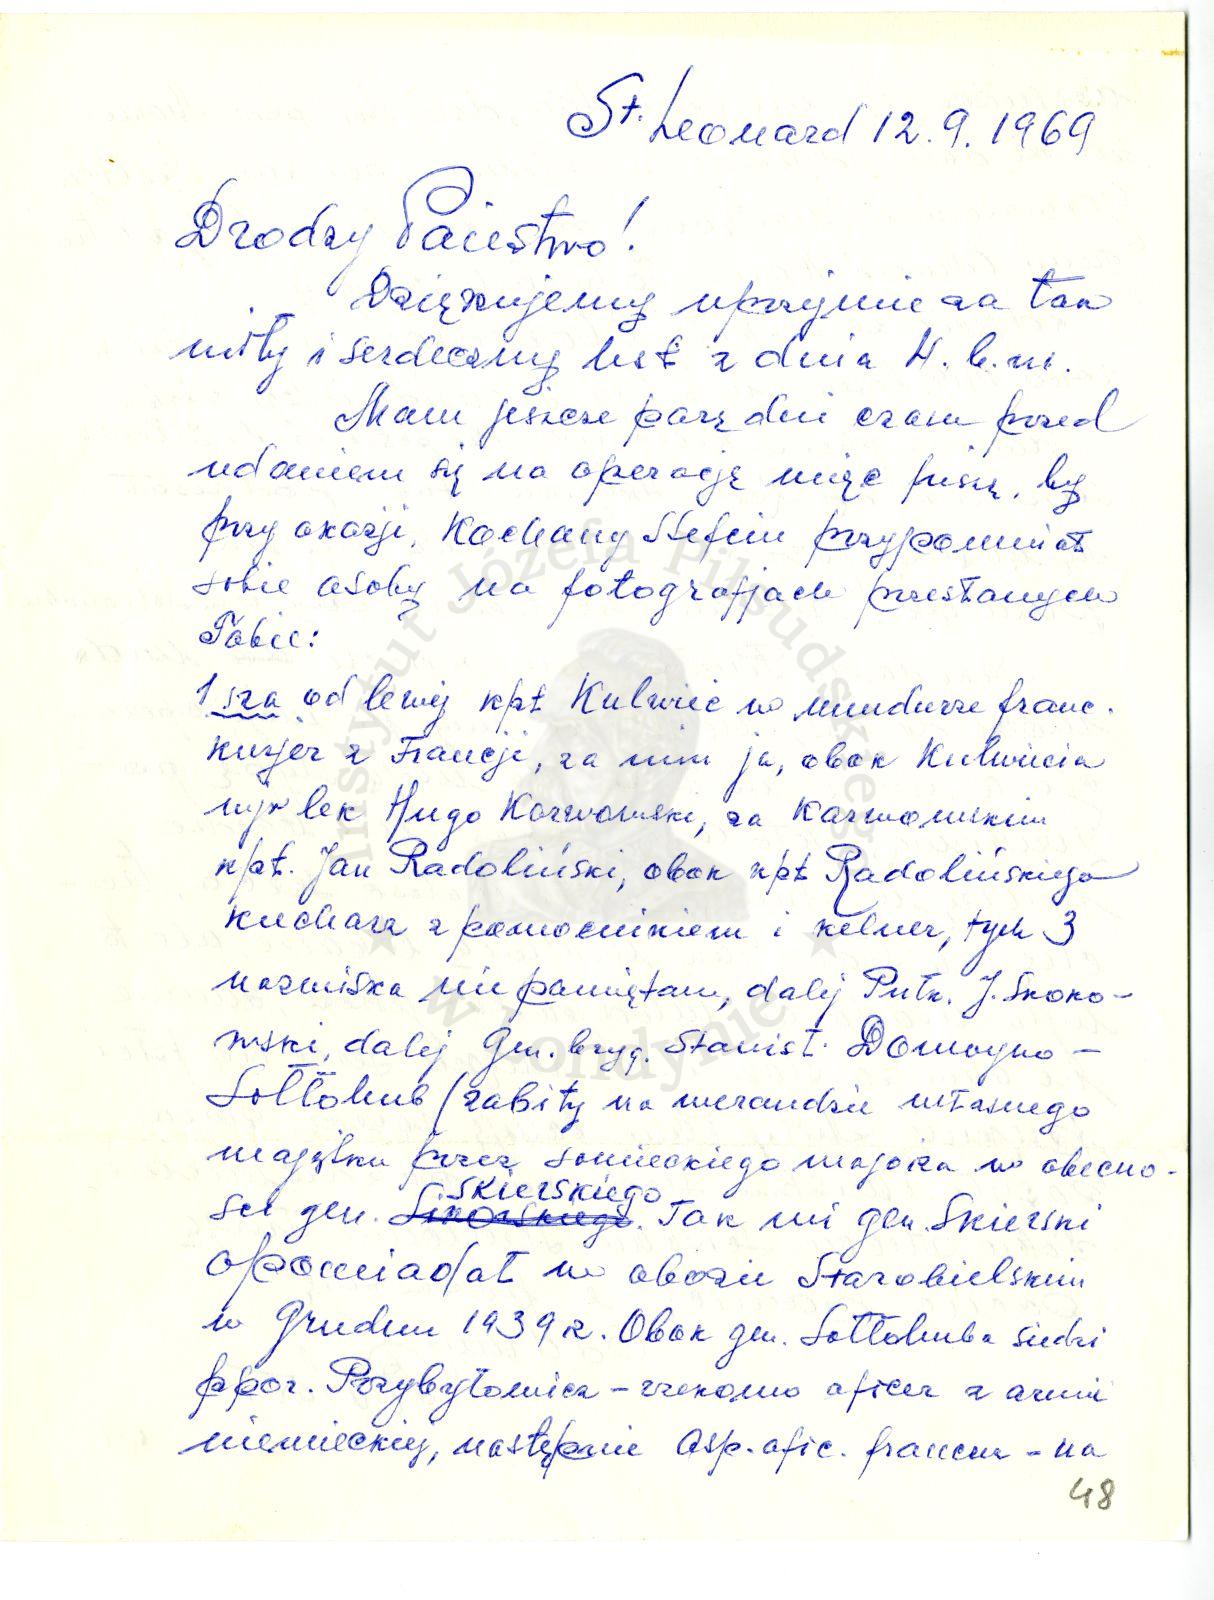 St. Leonard 12.9.1969
Drodzy Państwo!
Dziękujemy uprzejmie za tak
miły i serdeczny list z dnia 4. b.m.
Mam jeszcze parę dni czasu przed
udaniem się na operację więc piszę, by
przy okazji, Kochany Stefciu przypomniał
sobie osoby na fotografjach przesłanych
Tobie:
1sza od lewej kpt Kulwieć w mundurze franc.
kurjer z Francji, za nim ja, obok Kulwiecia
mjr lek Hugo Karwowski, za Karwowskim
kpt. Jan Radoliński, obok kpt Radolińskiego
kucharz z pomocnikiem i kelner, tych 3
nazwiska nie pamiętam, dalej Putk. J. Skoko-
wski, dalej Gen. bryg. Stanisł. Dowoyno-
Sołłohub (zabity na werandzie własnego
majątku przez sowieckiego majora w obecno-
ści gen. Sikorskiego Skierskiego. Tak mi gen. Skierski
opowiadał w obozie Starobielskim
w Grudniu 1939 r. Obok gen. Sołłohuba siedzi
ppor. Przybyłowicz - rzekomo oficer z armii
niemieckiej, następnie asp. ofic. francus - na
48
Instytut Józefa Piłsudskiego
w Londynie